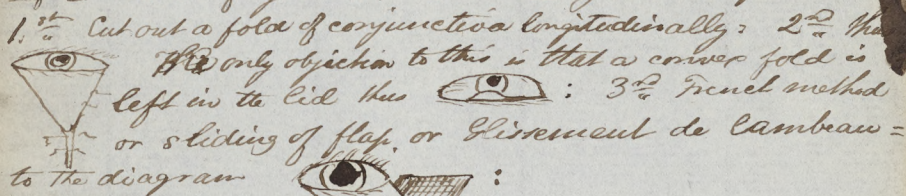 1.st Cut out a fold of conjunctiva longitudinally: 2nd thus
The only objection to this is that a convex fold is
left in the lid thus : 3rd French method
or sliding of flap. or Glissement de lambeau =
to the diagram :